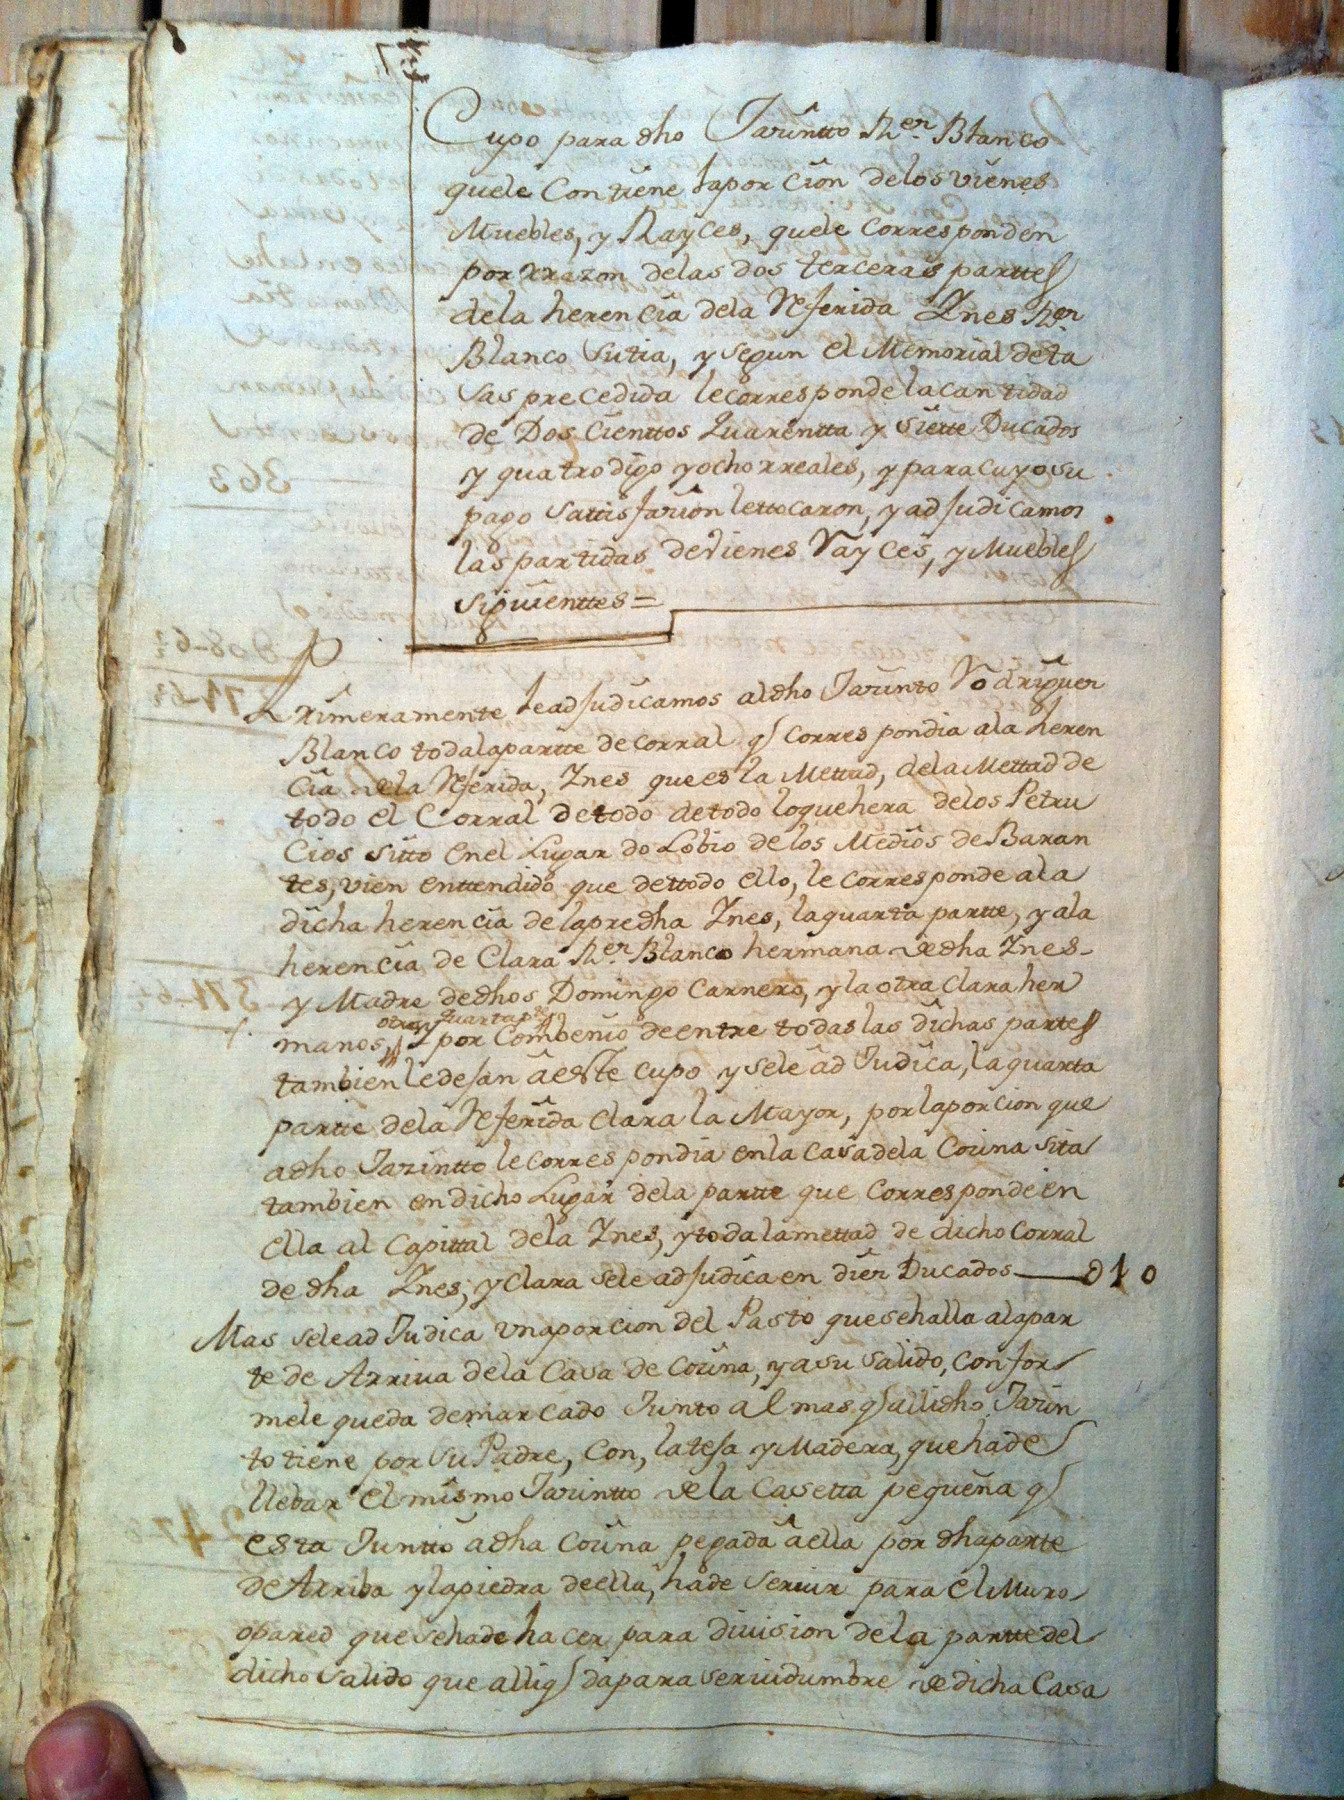 Cupo para dho Jacintto Rr.er Blanco
quele Contiene laporcion delos vienes
Muebles, y Rayces, quele Corresponden
por rrazon delas dos terceras parttes
dela herencia dela Referida Ines Rer.
Blanco Sutia, y segun el Memorial deta
sas precedida lecorresponde lacantidad
de Dos Cienttos Quarentta y Siette Ducados
y quatro digo yocho rreales, y para cuyo su
pago Sattisfacion lettocaron, y adJudicamos
las partidas deVienes Rayces, y Muebles
siguienttes=
Primeramente leadJudicamos aldho Jacinto Rodriguez
Blanco toda la partte de corral q correspondia ala heren
cia dela Referida, Ines que es la Mettad, dela Mettad de
todo el Corral de todo de todo loquehera delos Petru
cios sitto enel Lugar do Lobio de los Medios de Baran
tes, vien enttendido que dettodo ello, le corresponde ala
dicha herencia de lapredha Ines, la quarta partte, y ala
herencia de Clara Rr.er Blanco hermana dedha Ines
y Madre dedhos Domingo Carnero, y la otra Clara her
otra quarta pte
manos, y por Combenio de entre todas las dichas partes
tambien le dejan a este cupo y sele ad Judica, la quarta
partte dela Referida Clara la Mayor, por laporcion que
adho Jazintto le correspondia enla Casa dela Cocina sita
tambien en dicho Lugar dela partte que Corresponde en
ella al Capittal dela Ines, y toda lamettad de dicho Corral
de dha Ines, y Clara sele adJudica en diez Ducados — 010
Mas selead Judica Vnaporcion del Pasto quesehalla alapar
te de Arriua dela Casa de Cocina, y a su Salido, confor
mele queda demarcado Junto al mas q alli dho Jacin
to tiene por su Padre, Con, lateja y Madera, que hade
llebar el mismo Jacintto dela Casetta pequeña q
esta Juntto adha Cocina pegada aella por dhaparte
de Arriba y lapiedra deella, hade seruir para el Muro
opared que sehade hacer para diuision dela parttedel
dicho Salido que alliq dapara seruidumbre dedicha Casa